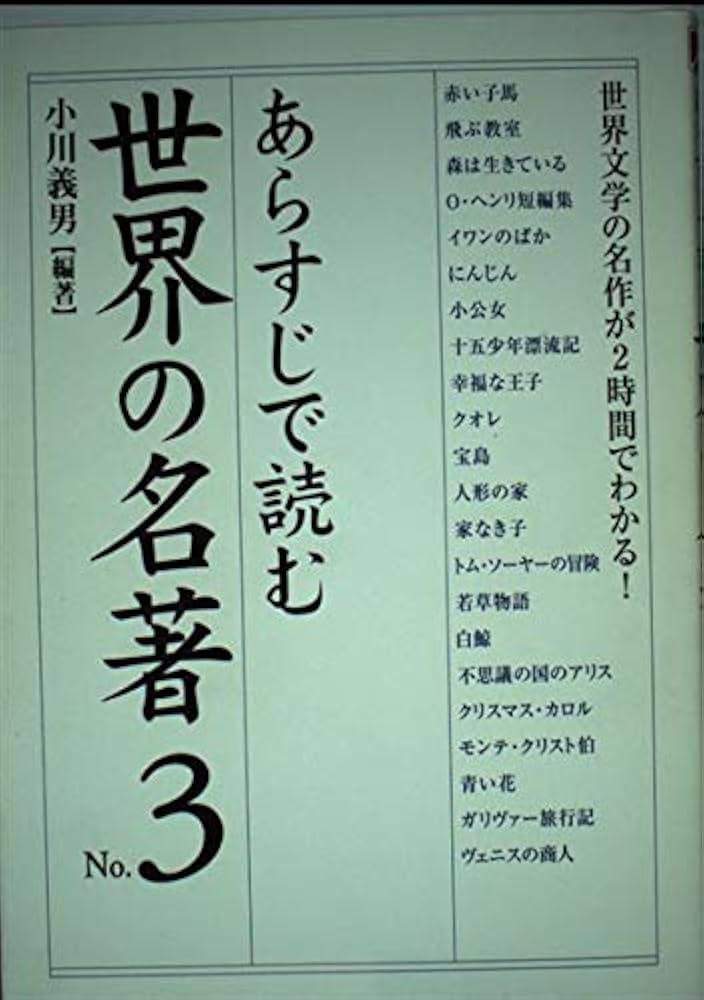 世界文学の名作が2時間でわかる!
赤い子馬
飛ぶ教室
森は生きている
O・ヘンリ短編集
イワンのばか
にんじん
小公女
十五少年漂流記
幸福な王子
クオレ
宝島
人形の家
家なき子
トム・ソーヤーの冒険
若草物語
白鯨
不思議の国のアリス
クリスマス・カロル
モンテ・クリスト伯
青い花
ガリヴァー旅行記
ヴェニスの商人
あらすじで読む
世界の名著
No.3
小川義男[編著]